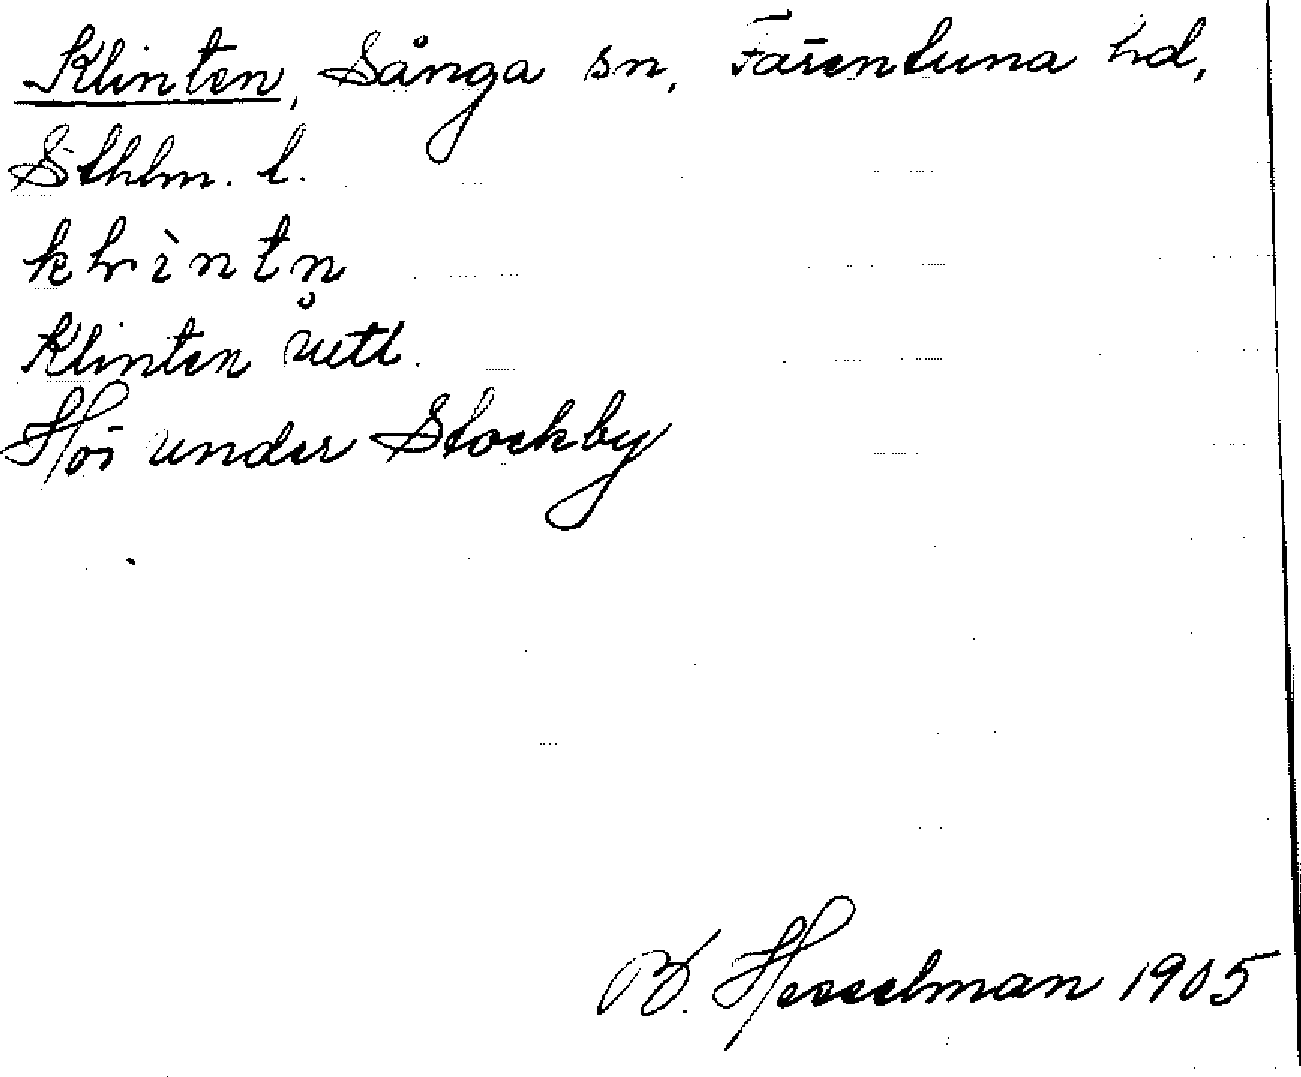 Klinten, Sånga sn, Färentuna hd,
Sthlm. l.
Klinten
Hör under Stockby
B. Hesselman 1905